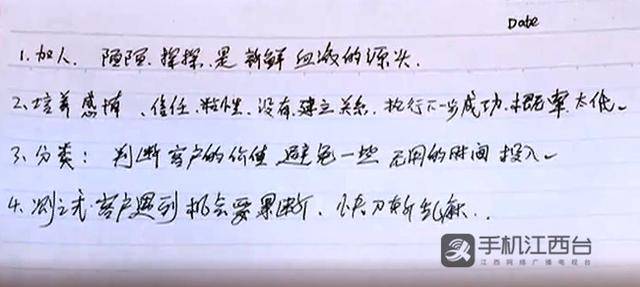 Date
1.加人. 陌陌.探探.是新鲜血液的源头.
2.培养感情、信任.粘性.没有建立关系.执行下一步成功概率太低。
3.分类：判断客户的价值.避免一些无用的时间投入。
4. 客户遇到机会要果断.快刀斩乱麻..
手机江西台
江西网络广播电视台